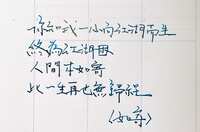 你和我一心向江湖而生
終為江湖困
人間本如寄
此一生再也無歸程
《如寄》